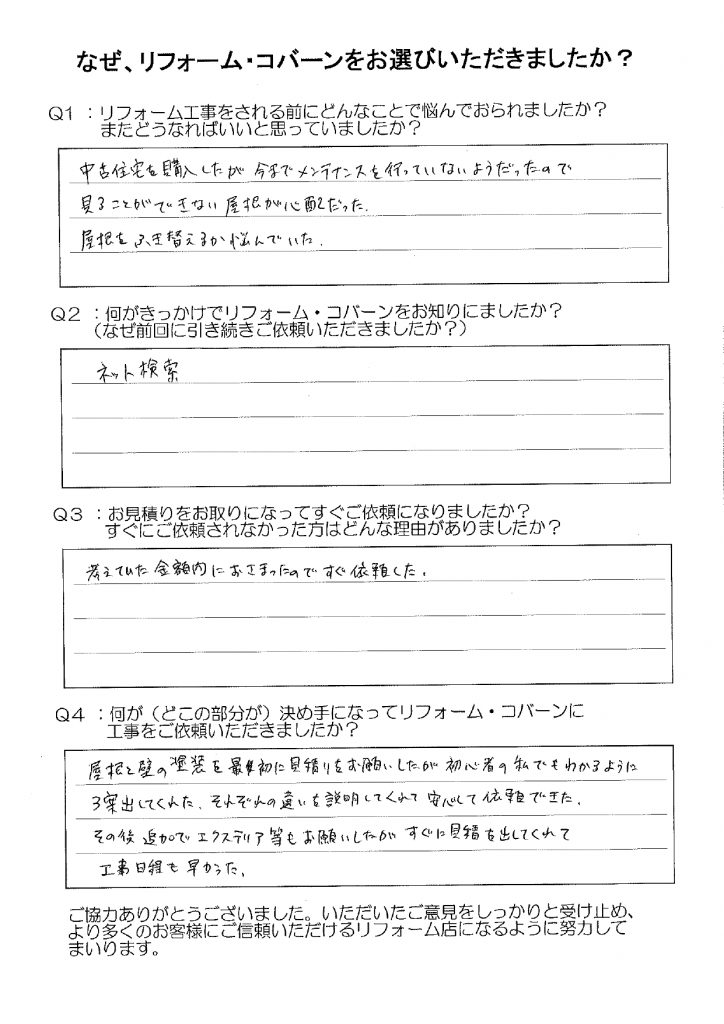 なぜ、リフォーム・コバーンをお選びいただきましたか？
Q1 ：リフォーム工事をされる前にどんなことで悩んでおられましたか？
またどうなればいいと思っていましたか？
中古住宅を購入したが 今までメンテナンスを行っていないようだったので
見ることができない屋根が心配だった.
屋根をふき替えるか悩んでいた.
Q2 ：何がきっかけでリフォーム・コバーンをお知りにましたか？
（なぜ前回に引き続きご依頼いただきましたか？）
ネット検索
Q3 ：お見積りをお取りになってすぐご依頼になりましたか？
すぐにご依頼されなかった方はどんな理由がありましたか？
考えていた金額内におさまったのですぐ依頼した.
Q4 ：何が（どこの部分が）決め手になってリフォーム・コバーンに
工事をご依頼いただきましたか？
屋根と壁の塗装を最初に見積りをお願いしたが 初心者の私でもわかるように
3案出してくれた、それぞれの違いを説明してくれて 安心して依頼できた.
その後 追加でエクステリア等もお願いしたが すぐに見積を出してくれて
工事日程も早かった.
ご協力ありがとうございました。いただいたご意見をしっかりと受け止め、
より多くのお客様にご信頼いただけるリフォーム店になるように努力して
まいります。